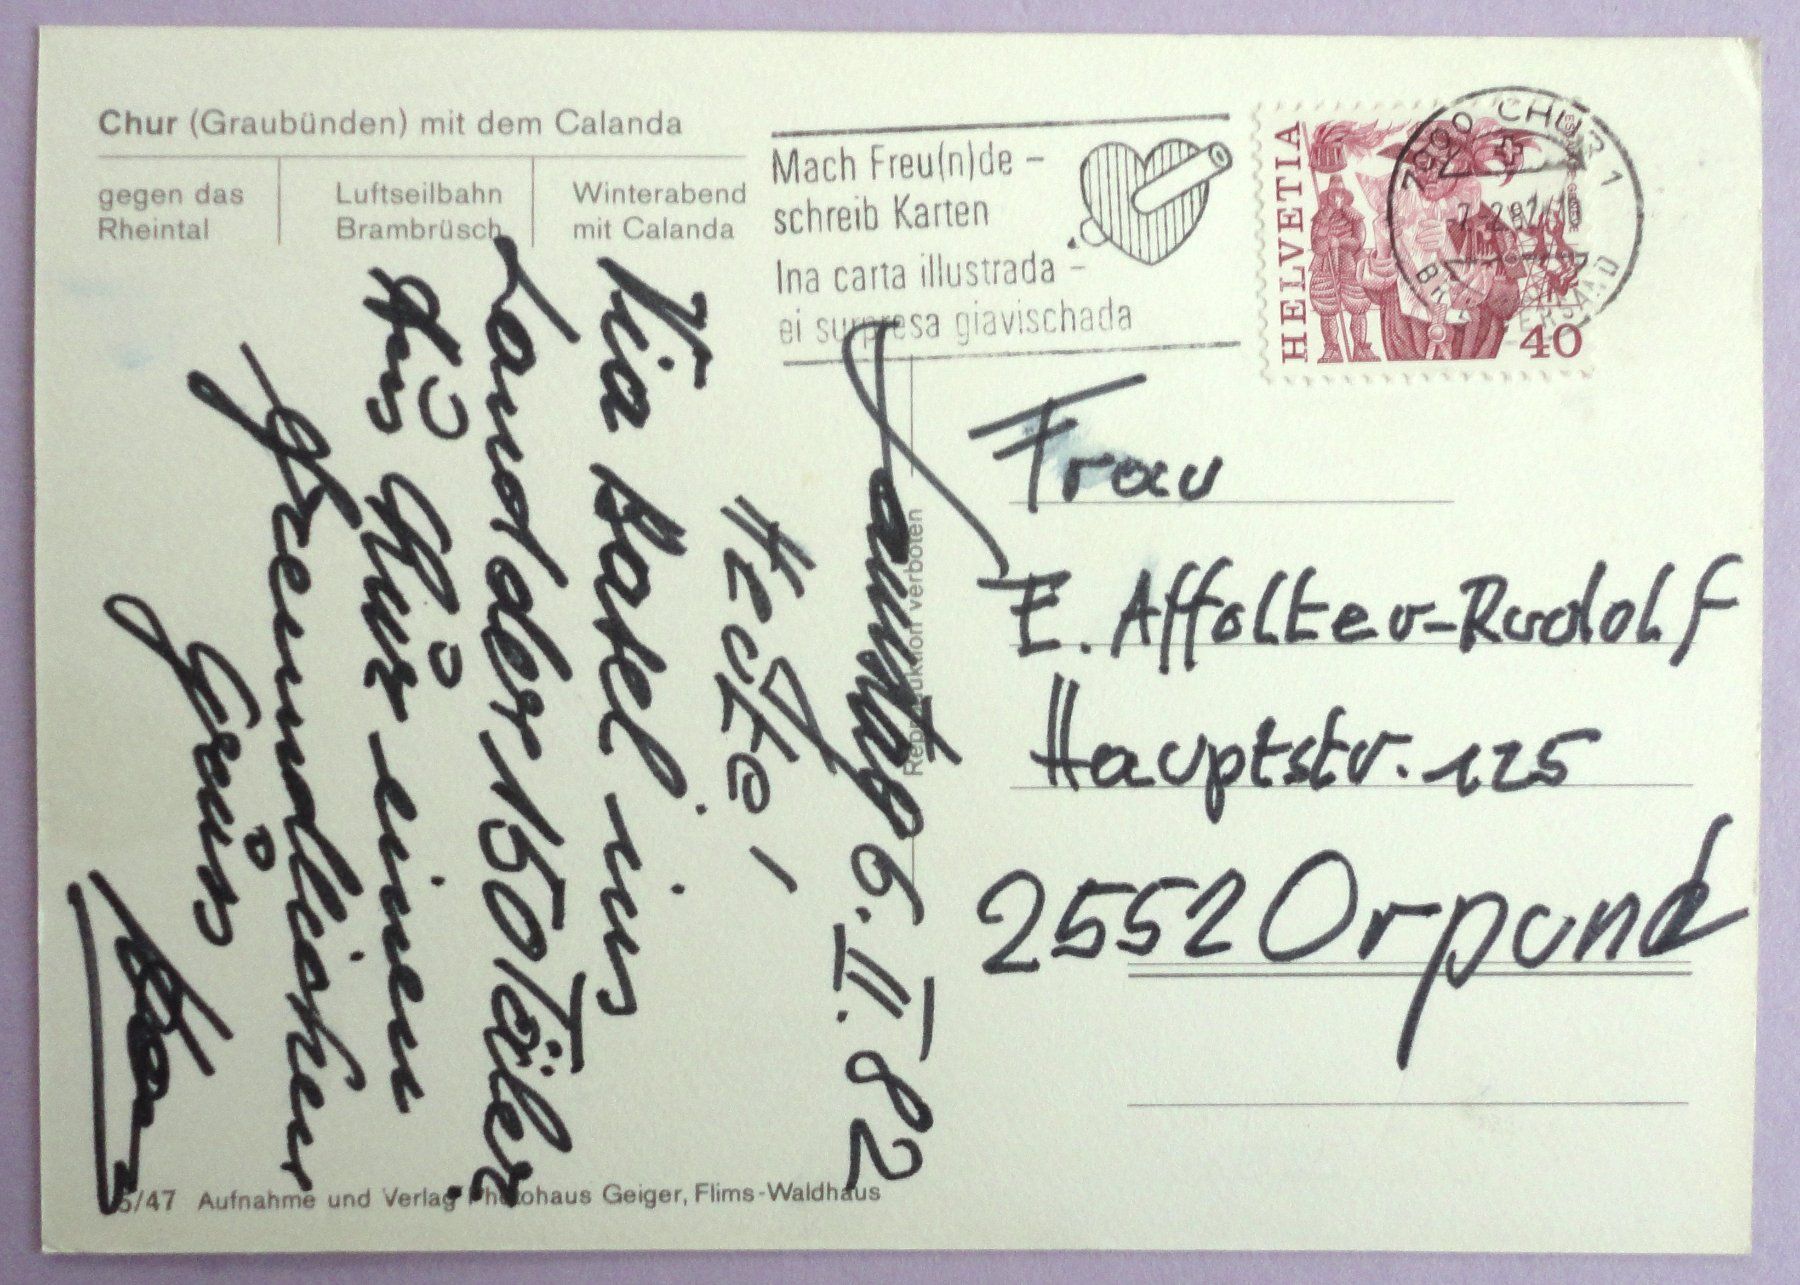 Chur (Graubünden) mit dem Calanda
gegen das
Rheintal
Luftseilbahn
Brambrüsch
Winterabend
mit Calanda
Mach Freu(n)de –
schreib Karten
Ina carta illustrada –
ei surpresa giavischada
HELVETIA
40
7000 CHUR 1
Samstag 6. II. 82
Hedte,
Via Basel ins
Land der 150 Täler
Aus Chur einen
freundlichen
Gruss
Reproduktion verboten
Frau
E. Affolter-Rudolf
Hauptstr. 125
2552 Orpund
5/47 Aufnahme und Verlag Photohaus Geiger, Flims-Waldhaus